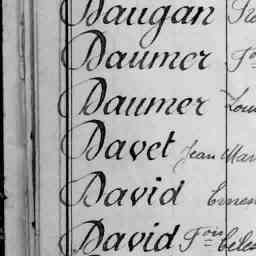 Daugan
Daumer
Daumer
Davet Jean Mar
David Ernes
David F^ois Céles